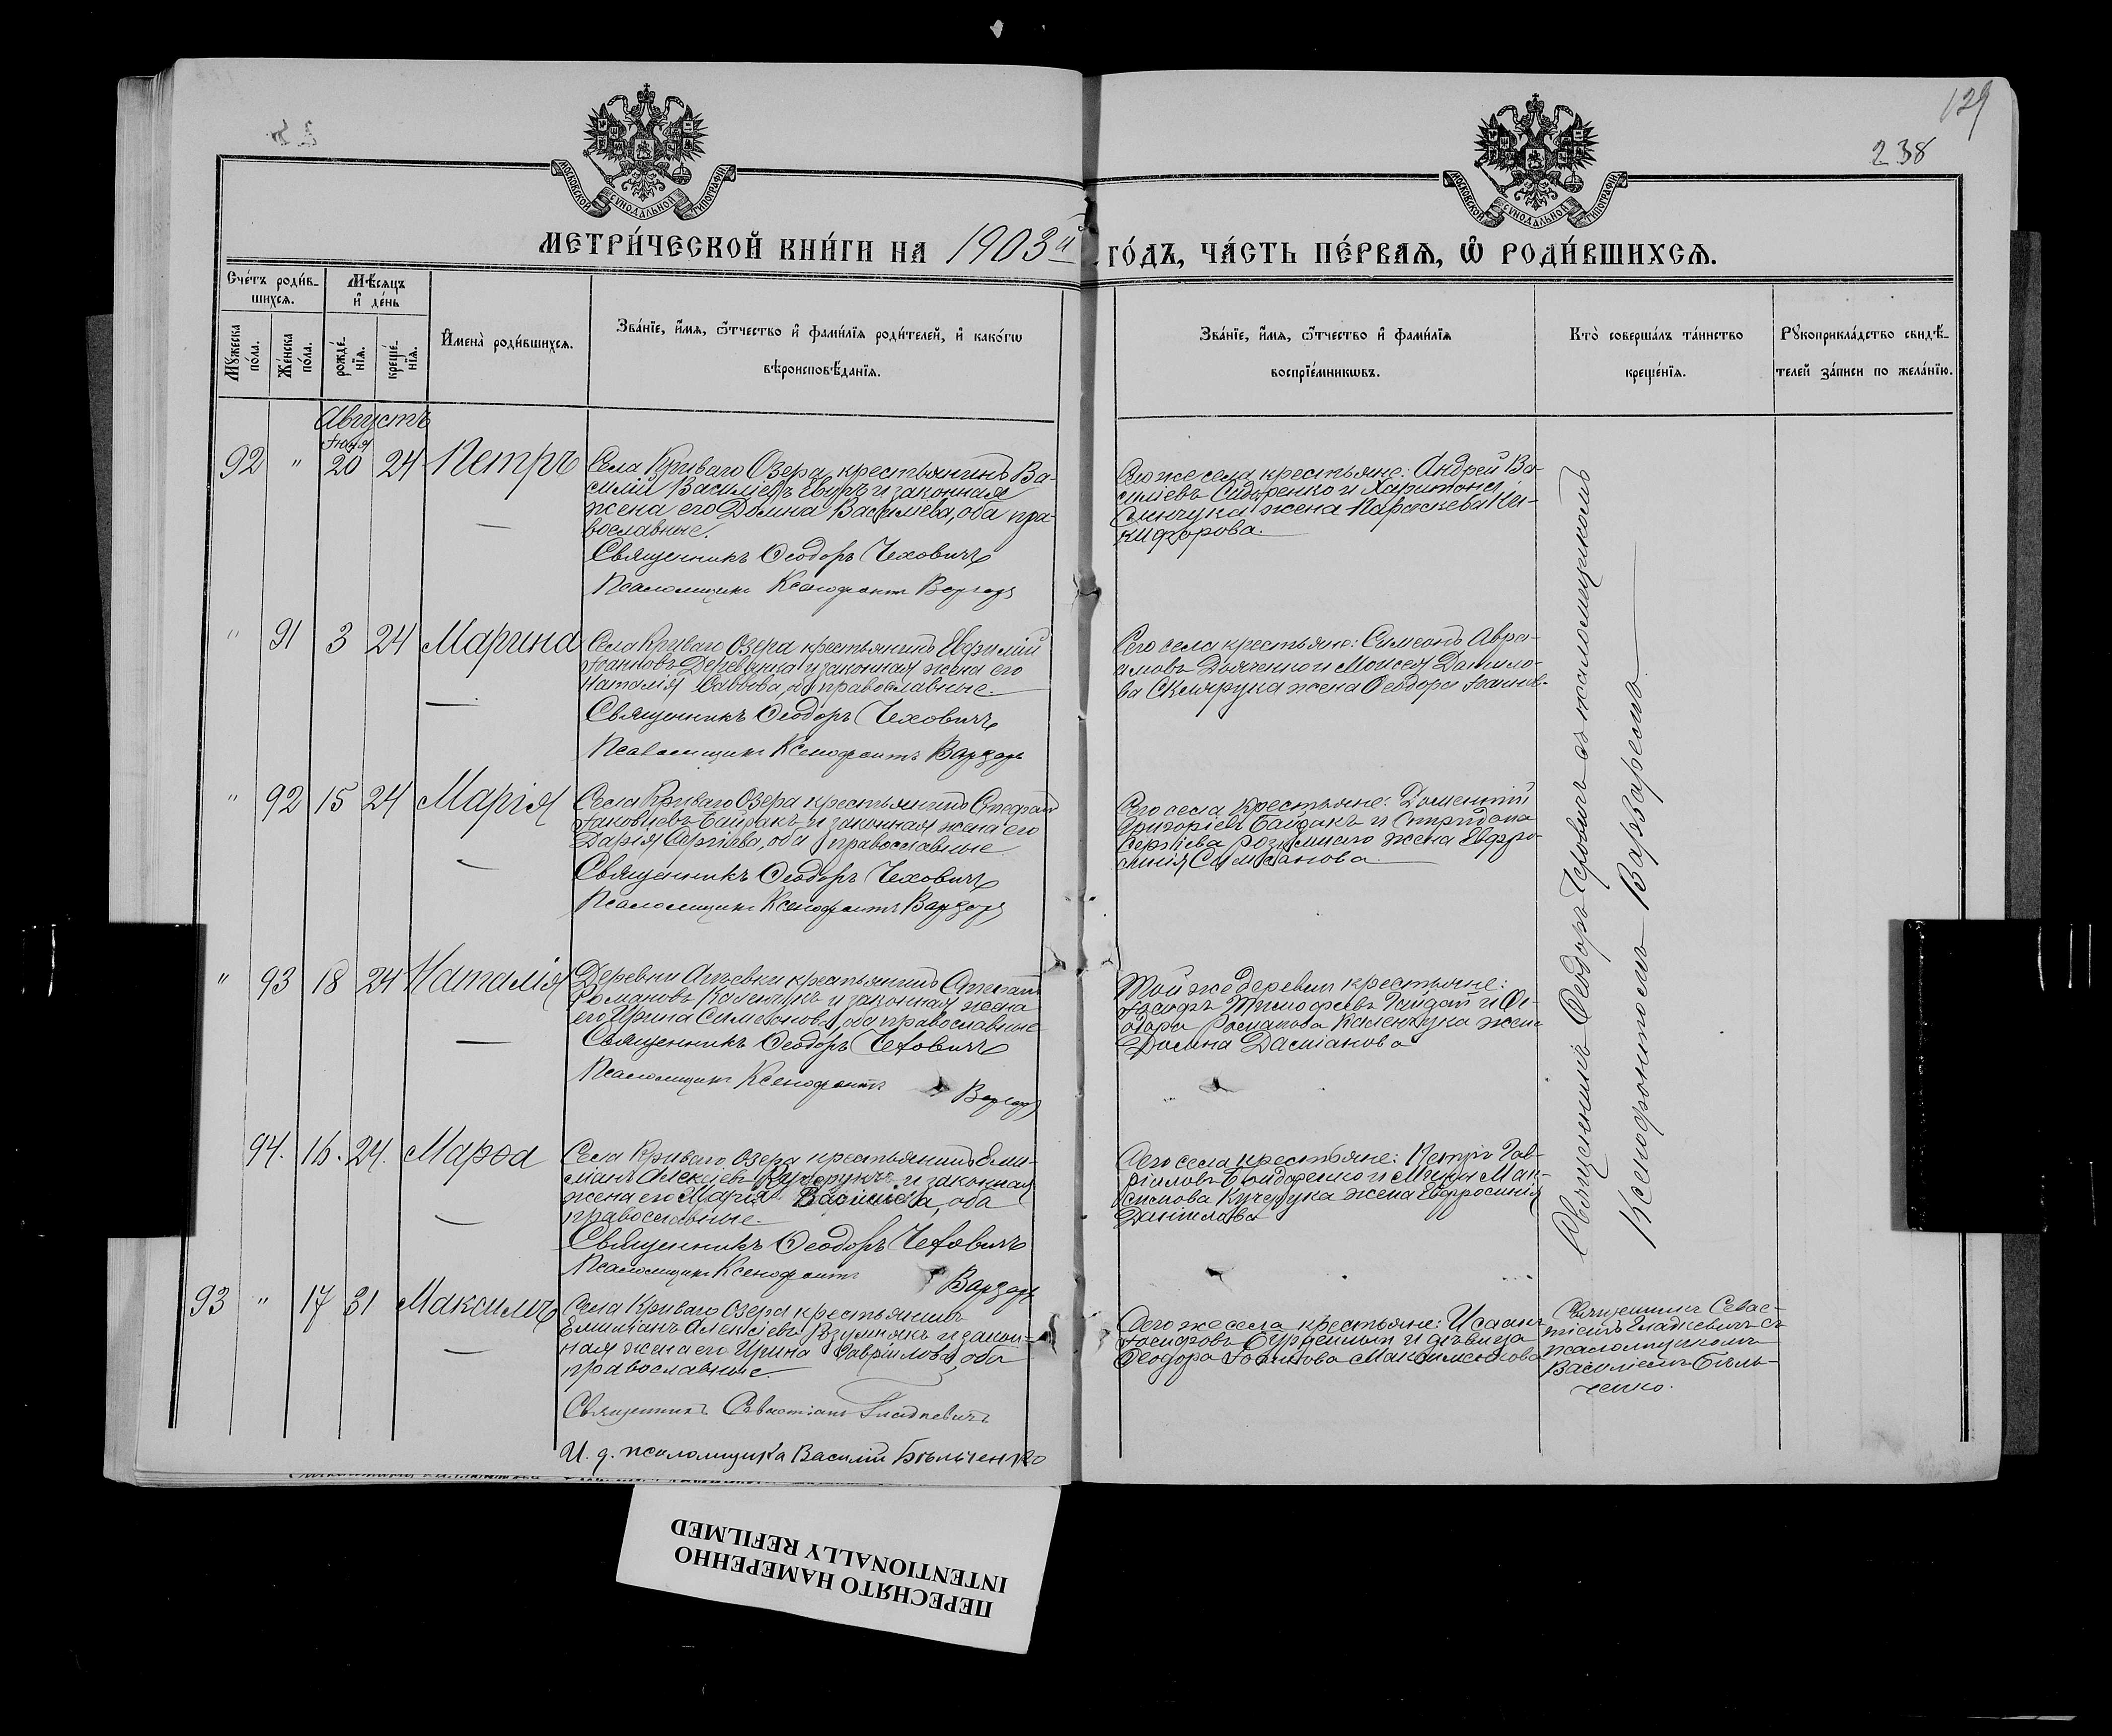 129
238
МОСКОВСКОЙ СѴНОДАЛЬНОЙ ТИПОГРАФІИ
МОСКОВСКОЙ СѴНОДАЛЬНОЙ ТИПОГРАФІИ
МЕТРИ́ЧЕСКОЙ КНИ́ГИ НА 1903й ГО́ДЪ, ЧА́СТЬ ПЕ́РВАѦ, Ѡ҆ РОДИ́ВШИХСѦ.
Сче́тъ роди́в-
шихсѧ.
Мѣ́сѧцъ
и҆ де́нь
Мꙋ́жеска
по́ла.
Же́нска
по́ла.
рожде́-
нїѧ.
креще́-
нїѧ.
И҆мена̀ роди́вшихсѧ.
Зва́нїе, и҆́мѧ, ѻ҆́тчество и҆ фами́лїѧ роди́телей, и҆ како́гѡ
вѣроисповѣ́данїѧ.
Зва́нїе, и҆́мѧ, ѻ҆́тчество и҆ фами́лїѧ
воспрїе́мникѡвъ.
Кто̀ соверша́лъ та́инство
креще́нїѧ.
Рꙋкоприкла́дство свидѣ́-
телей за́писи по жела́нїю.
Августъ
92 " Іюня 20 24 Петръ
Села Криваго Озера крестьянинъ Ва-
силій Василіевъ и законная
жена его Домна Василіева, оба пра-
вославные.
Священникъ Ѳеодоръ Чеховичъ
Псаломщикъ Ксенофонтъ Варзарь
Сего же села крестьяне: Андрей Ва-
силіевъ Сидоренко и Харитона
жена Параскева Ни-
кифорова.
" 91 3 24 Марина
Села Криваго Озера крестьянинъ Евфимій
Іоанновъ Деревянка и законная жена его
Наталія Саввова, оба православные.
Священникъ Ѳеодоръ Чеховичъ
Псаломщикъ Ксенофонтъ Варзарь
Сего села крестьяне: Симеонъ Авра-
амовъ Дьяченко и Моисея Данило-
ва Склярука жена Ѳеодора Іоаннов-
" 92 15 24 Марія
Села Криваго Озера крестьянинъ Стефанъ
Іаковлевъ Байдакъ и законная жена его
Дарія Сергіева, оба православные
Священникъ Ѳеодоръ Чеховичъ
Псаломщикъ Ксенофонтъ Варзарь
Сего села крестьяне: Дометій
Григоріевъ Байдакъ и Спиридона
Сергіева жена Евфро-
синія Симеонова
" 93 18 24 Наталія
Деревни крестьянинъ
Романовъ Каленчукъ и законная жена
его Ирина Симеонова, оба православные
Священникъ Ѳеодоръ Чеховичъ
Псаломщикъ Ксенофонтъ Варзарь
Той же деревни крестьяне:
Іосифъ Тимофеевъ Гайдай и Ѳе-
одора Романова Каленчука жена
Домна Даміанова
94. 16. 24. Марѳа
Села Криваго Озера крестьянинъ Еми-
ліанъ Алексіевъ Кучерукъ и законная
жена его Марія Василіева, оба
православные.
Священникъ Ѳеодоръ Чеховичъ
Псаломщикъ Ксенофонтъ Варзарь
Сего села крестьяне: Петръ Гав-
ріиловъ Бондаренко и Мак-
симова Кучерука жена Евфросинія
Даніилова
Священникъ Ѳеодоръ Чеховичъ съ псаломщикомъ
Ксенофонтомъ Варзаремъ.
93 " 17 31 Максимъ
Села Криваго Озера крестьянинъ
Емиліанъ Алексіевъ Розумнякъ и закон-
ная жена его Ирина Гавріилова, оба
православные.
Священникъ Севастіанъ Гладкевичъ
И. д. псаломщика Василій Бѣльченко
Сего же села крестьяне: Исаакъ
Іосифовъ и дѣвица
Ѳеодора Іоаннова Максименкова
Священникъ Севас-
тіанъ Гладкевичъ съ
псаломщикомъ
Василіемъ Бѣль-
ченко.
ПЕРЕСНЯТО НАМЕРЕННО
INTENTIONALLY REFILMED